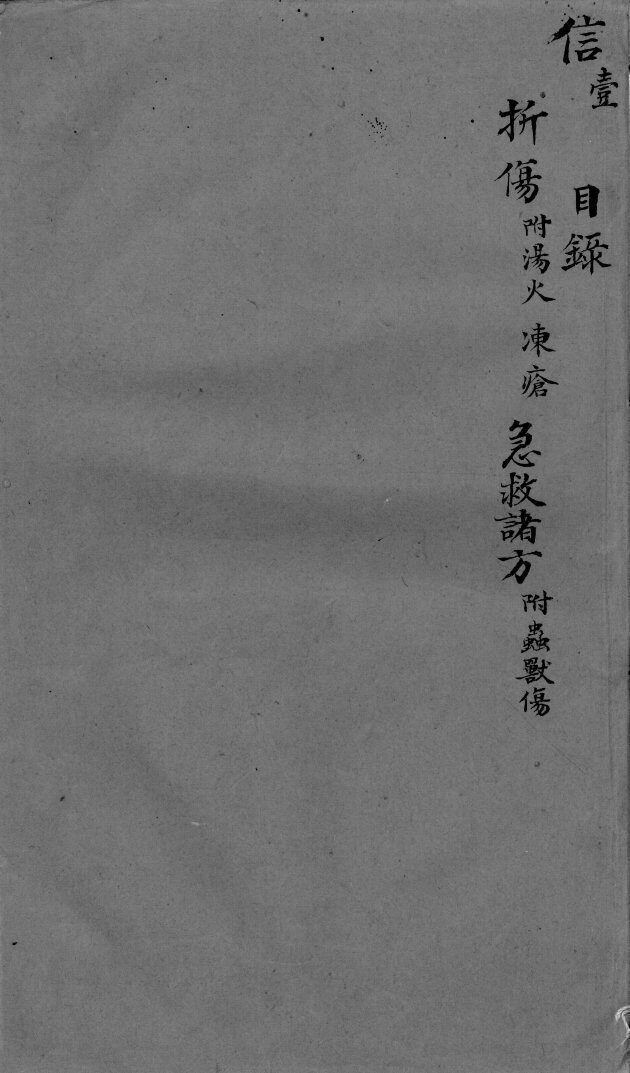 信壹
目錄
折傷附湯火 凍瘡 急救諸方附蟲獸傷